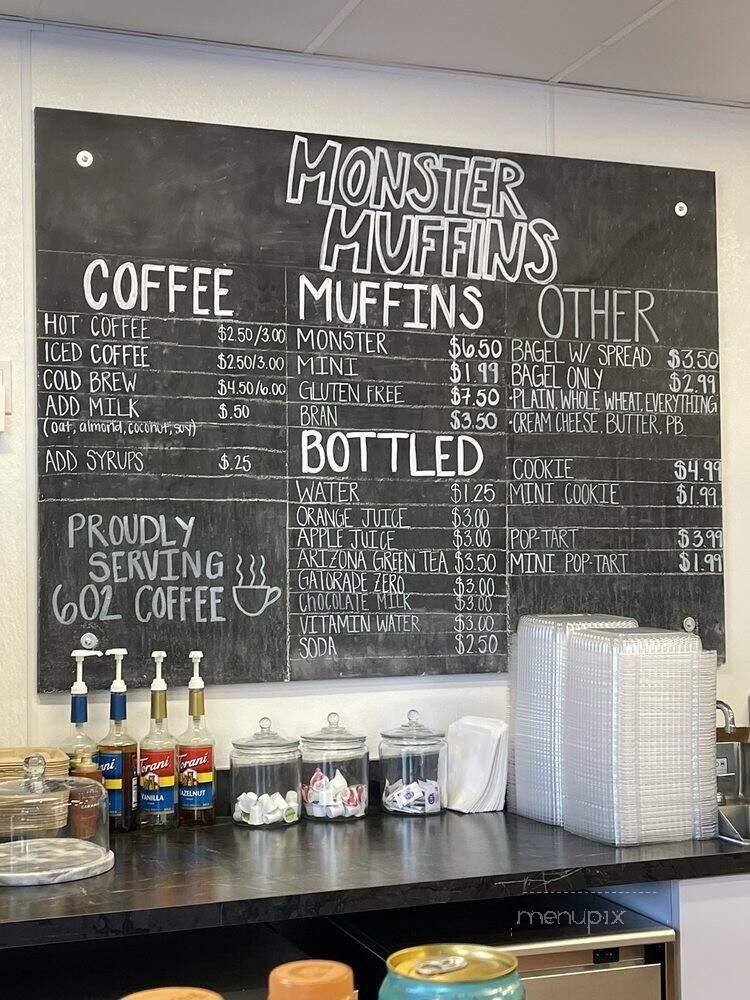 MONSTER
MUFFINS
COFFEE
HOT COFFEE $2.50/3.00
ICED COFFEE $2.50/3.00
COLD BREW $4.50/6.00
ADD MILK $.50
(oat, almond, coconut, soy)
ADD SYRUPS $.25
PROUDLY
SERVING
602 COFFEE
MUFFINS
MONSTER $6.50
MINI $1.99
GLUTEN FREE $7.50
BRAN $3.50
BOTTLED
WATER $1.25
ORANGE JUICE $3.00
APPLE JUICE $3.00
ARIZONA GREEN TEA $3.50
GATORADE ZERO $3.00
CHOCOLATE MILK $3.00
VITAMIN WATER $3.00
SODA $2.50
OTHER
BAGEL W/ SPREAD $3.50
BAGEL ONLY $2.99
•PLAIN WHOLE WHEAT, EVERYTHING
•CREAM CHEESE, BUTTER, PB
COOKIE $4.99
MINI COOKIE $1.99
POP-TART $3.99
MINI POP-TART $1.99
Torani
VANILLA
Torani
HAZELNUT
menupix